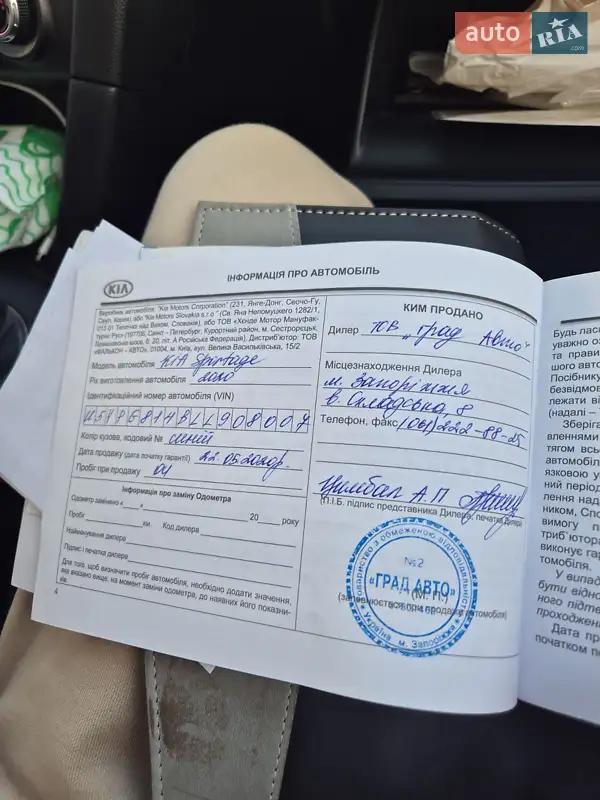 auto RIA .com
KIA
ІНФОРМАЦІЯ ПРО АВТОМОБІЛЬ
Виробник автомобіля: "Kia Motors Corporation" (231, Янге-Донг, Сеочо-Гу,
Сеул, Корея), або "Kia Motors Slovakia s.r.o." (Св. Яна Непомуцкего 1282/1,
013 01 Тепличка над Вагом, Словакія), або ТОВ «Хенде Мотор Мануфак-
туринг Рус» (197706, Санкт - Петербург, Курортний район, м. Сестрорецьк,
Левашовське шосе, б. 20, літ. А Російська Федерація). Дистриб'ютор: ТОВ
«ФАЛЬКОН - АВТО», 01004, м. Київ, вул. Велика Васильківська, 15/2
Модель автомобіля KIA Sportage
Рік виготовлення автомобіля 2020
Ідентифікаційний номер автомобіля (VIN)
Колір кузова, кодовий № синій
Дата продажу (дата початку гарантії) 22.05.2020р.
Пробіг при продажу 04
Інформація про заміну Одометра
Одометр замінено « » 20 року
Пробіг км. Код дилера
Найменування дилера
Підпис і печатка дилера
Для того, щоб визначити пробіг автомобіля, необхідно додати значення,
яка вказано вище, на момент заміни одометра, до наявних його показни-
ків.
4
КИМ ПРОДАНО
Дилер ТОВ "Град Авто"
Місцезнаходження Дилера
м. Запоріжжя
в. Складська, 8
Телефон, факс (061) 222-88-25
Цимбал А.П
(П.І.Б. підпис представника Дилера, печатка Дилера
(М. П.)
(заповнюється при продажу автомобіля)
Товариство з обмеженою відповідальністю
№2
«ГРАД АВТО»
Україна, м. Запоріжжя
Будь лас
уважно о
та прави
шого авто
Посібнику
лежати ві
(надалі –
Зберіга
вленнями
тягом всь
автомобіл
язковою у
ний період
лення над
ником, Спо
вимогу п
триб'ютора
виконує гар
томобіля.
У випад
бути відно
ного підтв
проходженн
Дата пр
початком по